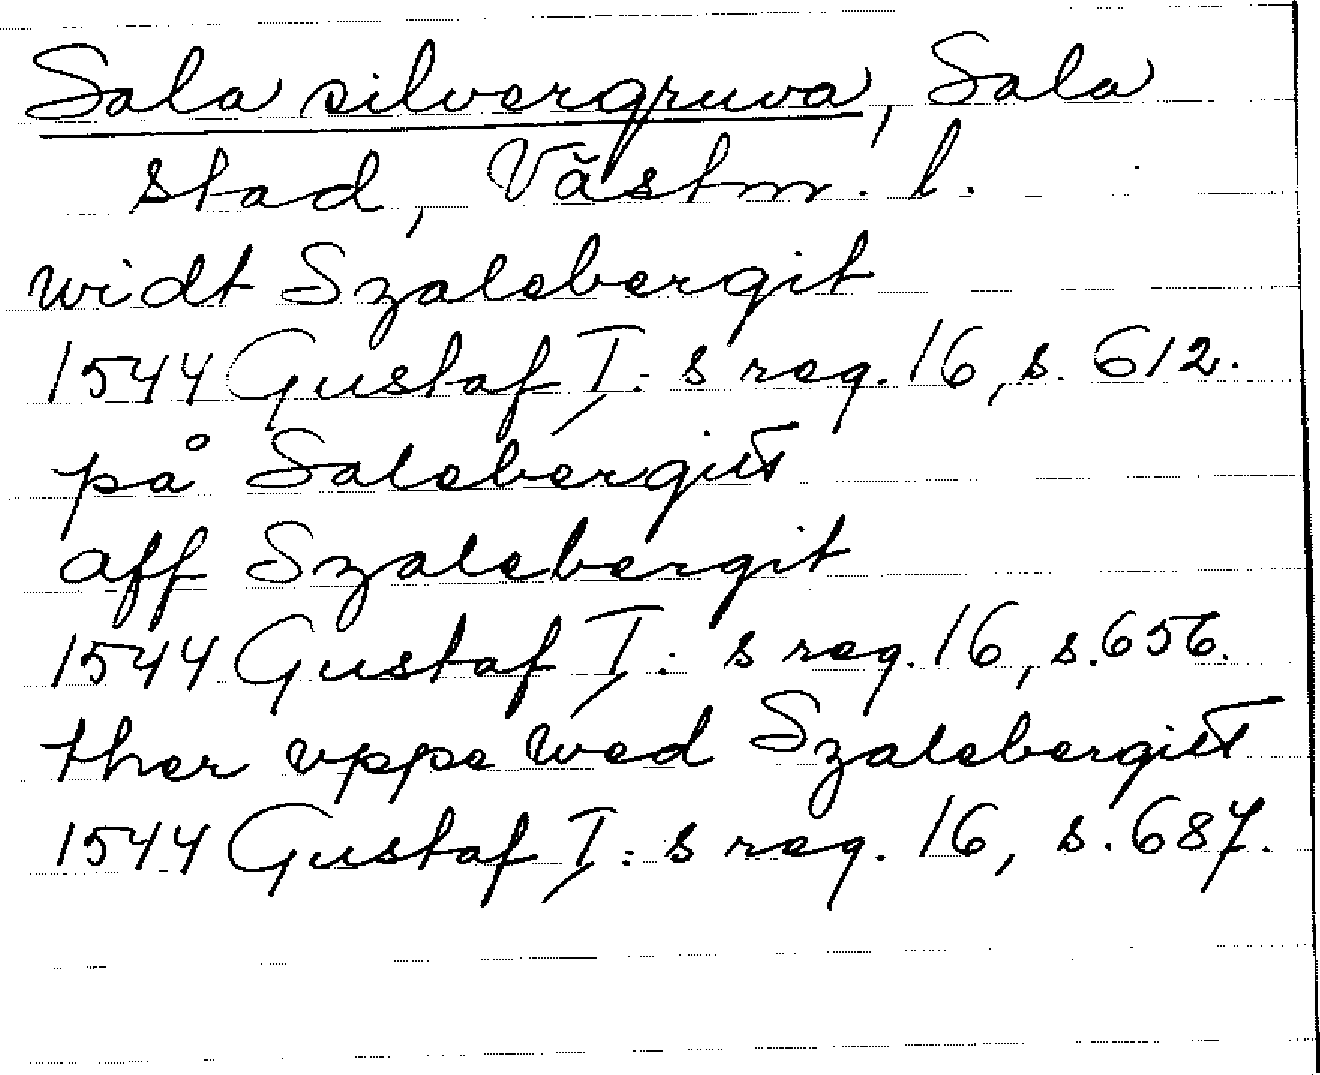 Sala silvergruva, Sala
stad, Västm. l.
widt Szalebergit
1544 Gustaf I:s reg. 16, s. 612.
på Salebergitt
aff Szalebergit
1544 Gustaf I:s reg. 16, s. 656.
ther vppe wed Szalebergitt
1544 Gustaf I:s reg. 16, s. 687.